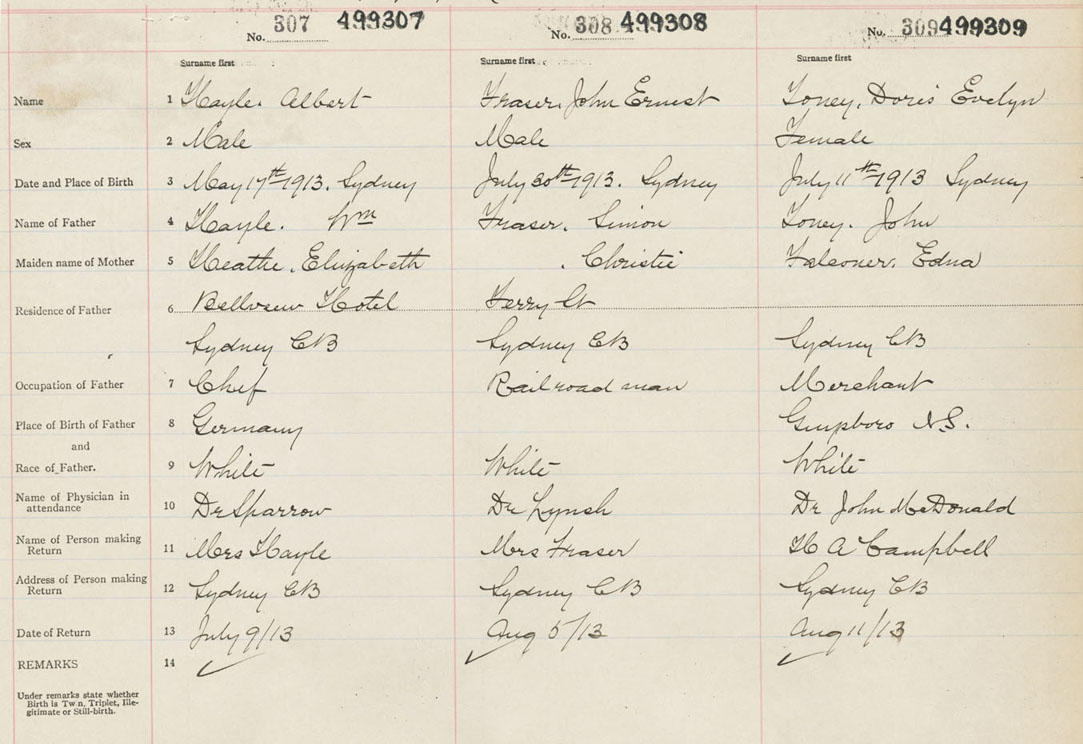 No. 307 499307 No. 308 499308 No. 309 499309
Surname first Surname first Surname first
Name 1 Hayle. Albert Fraser, John Ernest Toney, Doris Evelyn
Sex 2 Male Male Female
Date and Place of Birth 3 May 17th 1913. Sydney July 30th 1913. Sydney July 11th 1913 Sydney
Name of Father 4 Hayle. Wm Fraser, Simon Toney. John
Maiden name of Mother 5 Heathe, Elizabeth . Christie Falconer, Edna
Residence of Father 6 Bellview Hotel Ferry St
Sydney CB Sydney CB Sydney CB
Occupation of Father 7 Chef Railroad man Merchant
Place of Birth of Father 8 Germany N.S.
and
Race of Father. 9 White White White
Name of Physician in
attendance 10 Dr Sparrow Dr Lynsh Dr John McDonald
Name of Person making
Return 11 Mrs Hayle Mrs Fraser H A Campbell
Address of Person making
Return 12 Sydney CB Sydney CB Sydney CB
Date of Return 13 July 9/13 Aug 5/13 Aug 11/13
REMARKS 14
Under remarks state whether
Birth is Twin, Triplet, Ille-
gitimate or Still-birth.